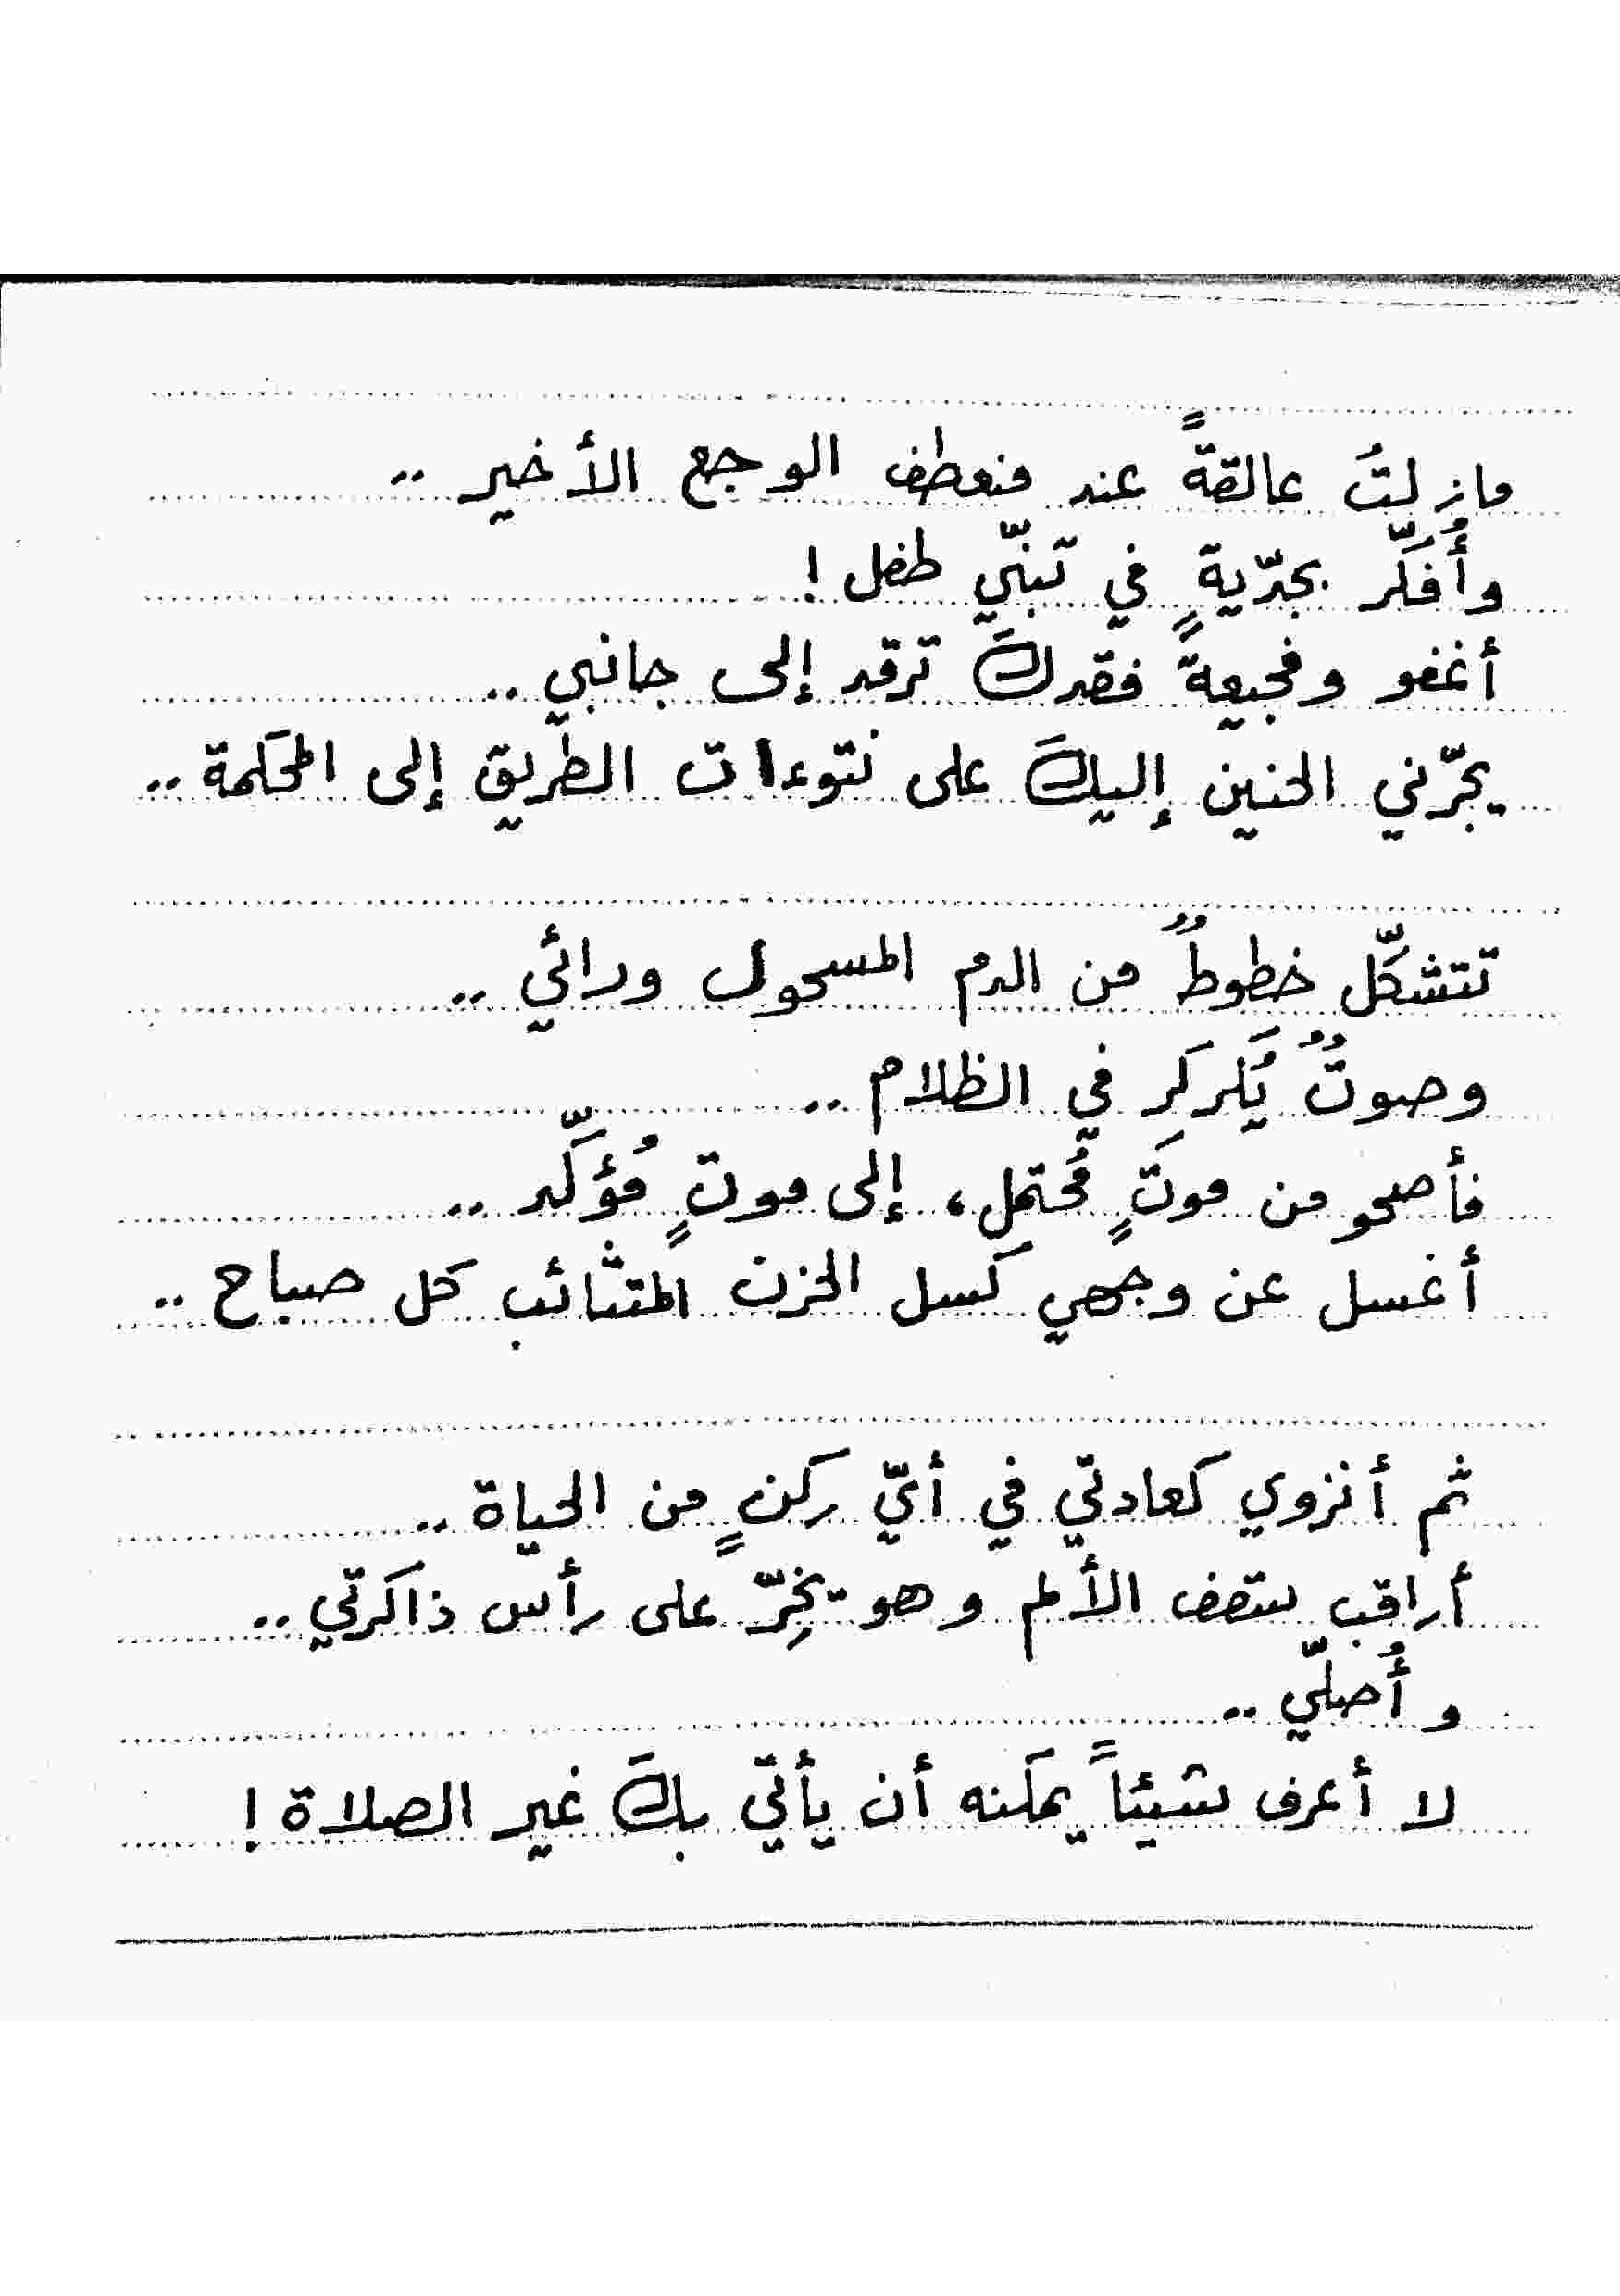 مازلتُ عالقةً عند منعطف الوجع الأخير ..
وأُفكّر بجدّيةٍ في تبنّي طفل !
أغفو وفجيعة فقدكَ ترقد إلى جانبي ..
يجرّني الحنين إليكَ على نتوءات الطريق إلى المحكمة ..
تتشكّل خطوطٌ من الدم المسحول ورائي ..
وصوتٌ يُكركِر في الظلام ..
فأصحو من موتٍ مُحتمل، إلى موتٍ مُؤكّد ..
أغسل عن وجهي كسل الحزن المتثائب كل صباح ..
ثم أنزوي كعادتي في أيّ ركنٍ من الحياة ..
أراقب سقف الألم وهو يخِرّ على رأس ذاكرتي ..
و أُصلّي ..
لا أعرف شيئاً يمكنه أن يأتي بكَ غير الصلاة !